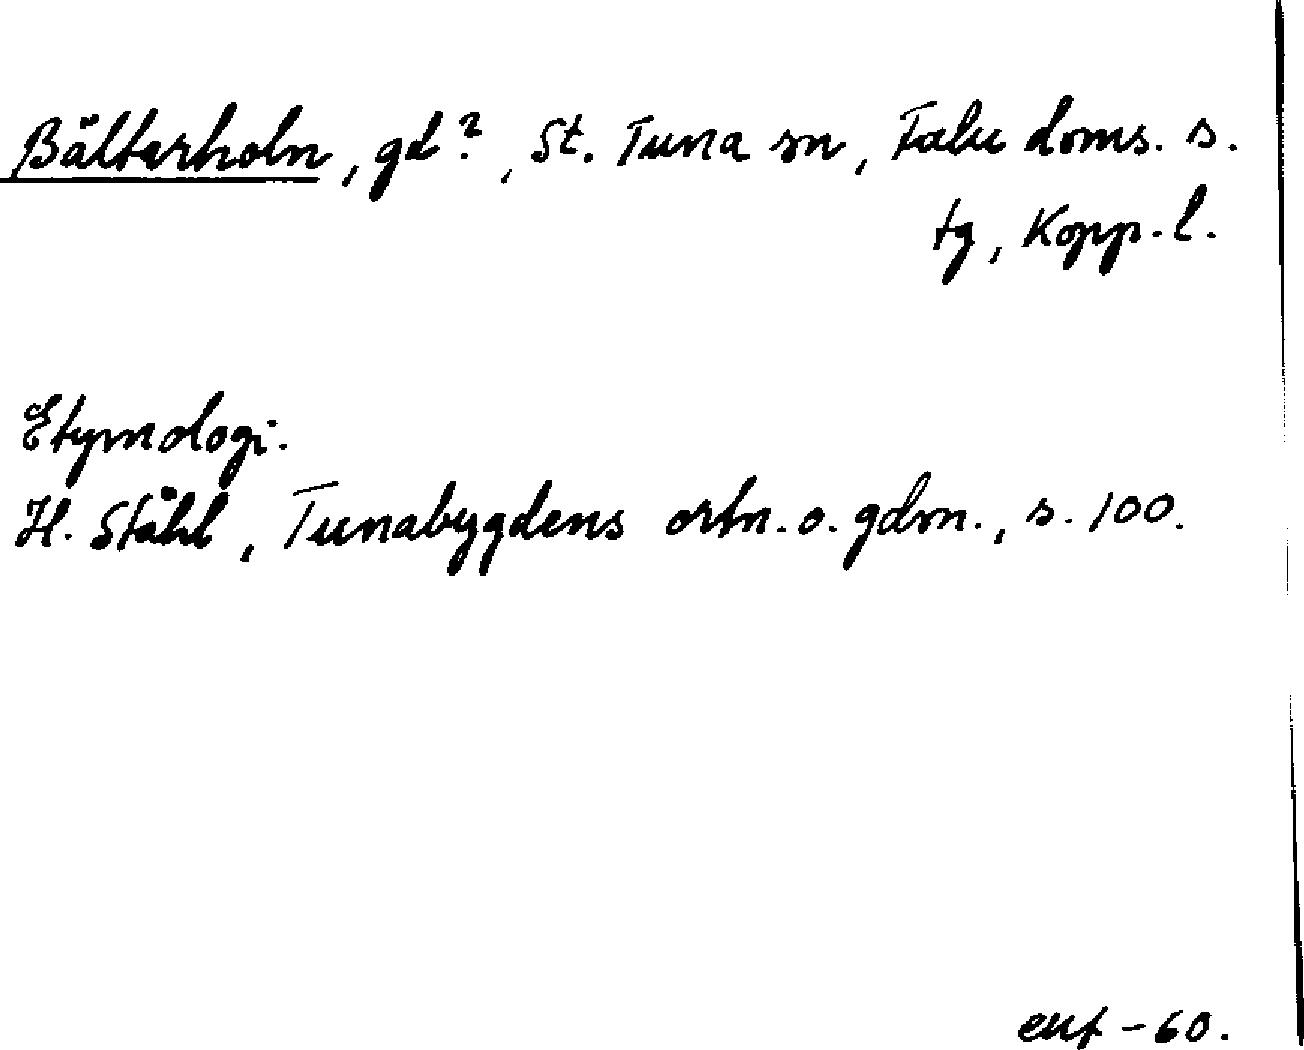 Bälterholn, gd?, St. Tuna sn, Falu doms. s.
tg, Kopp. l.
Etymologi.
H. Ståhl, Tunabygdens ortn. o. gdm., s. 100.
-60.